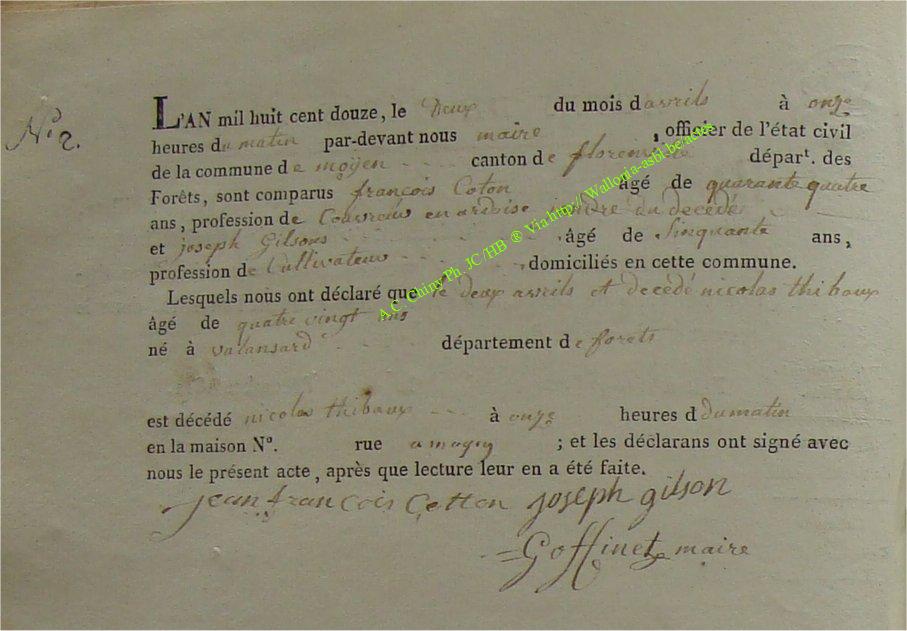 N.º 2.
L'AN mil huit cent douze, le Deux du mois d'avrils à onze
heures du matin par-devant nous maire, officier de l'état civil
de la commune de moÿen canton de florenville départ. des
Forêts, sont comparus françois Coton âgé de quarante quatre
ans, profession de Couvreur en ardoise du decedé
et joseph Gilsons âgé de Sinquante ans,
profession de Cultivateur, domiciliés en cette commune.
Lesquels nous ont déclaré que le deux avrils et decédé nicolas thibaux
âgé de quatre vingt ans
né à valansard département de forets
est décédé nicolas thibaux à onze heures d dumatin
en la maison Nº. rue a moyen; et les déclarans ont signé avec
nous le présent acte, après que lecture leur en a été faite.
jean francois Cotton joseph gilson
Goffinet maire
A.C Chiny Ph. JC/HB ® Via http://Wallonia-asbl.be/actes